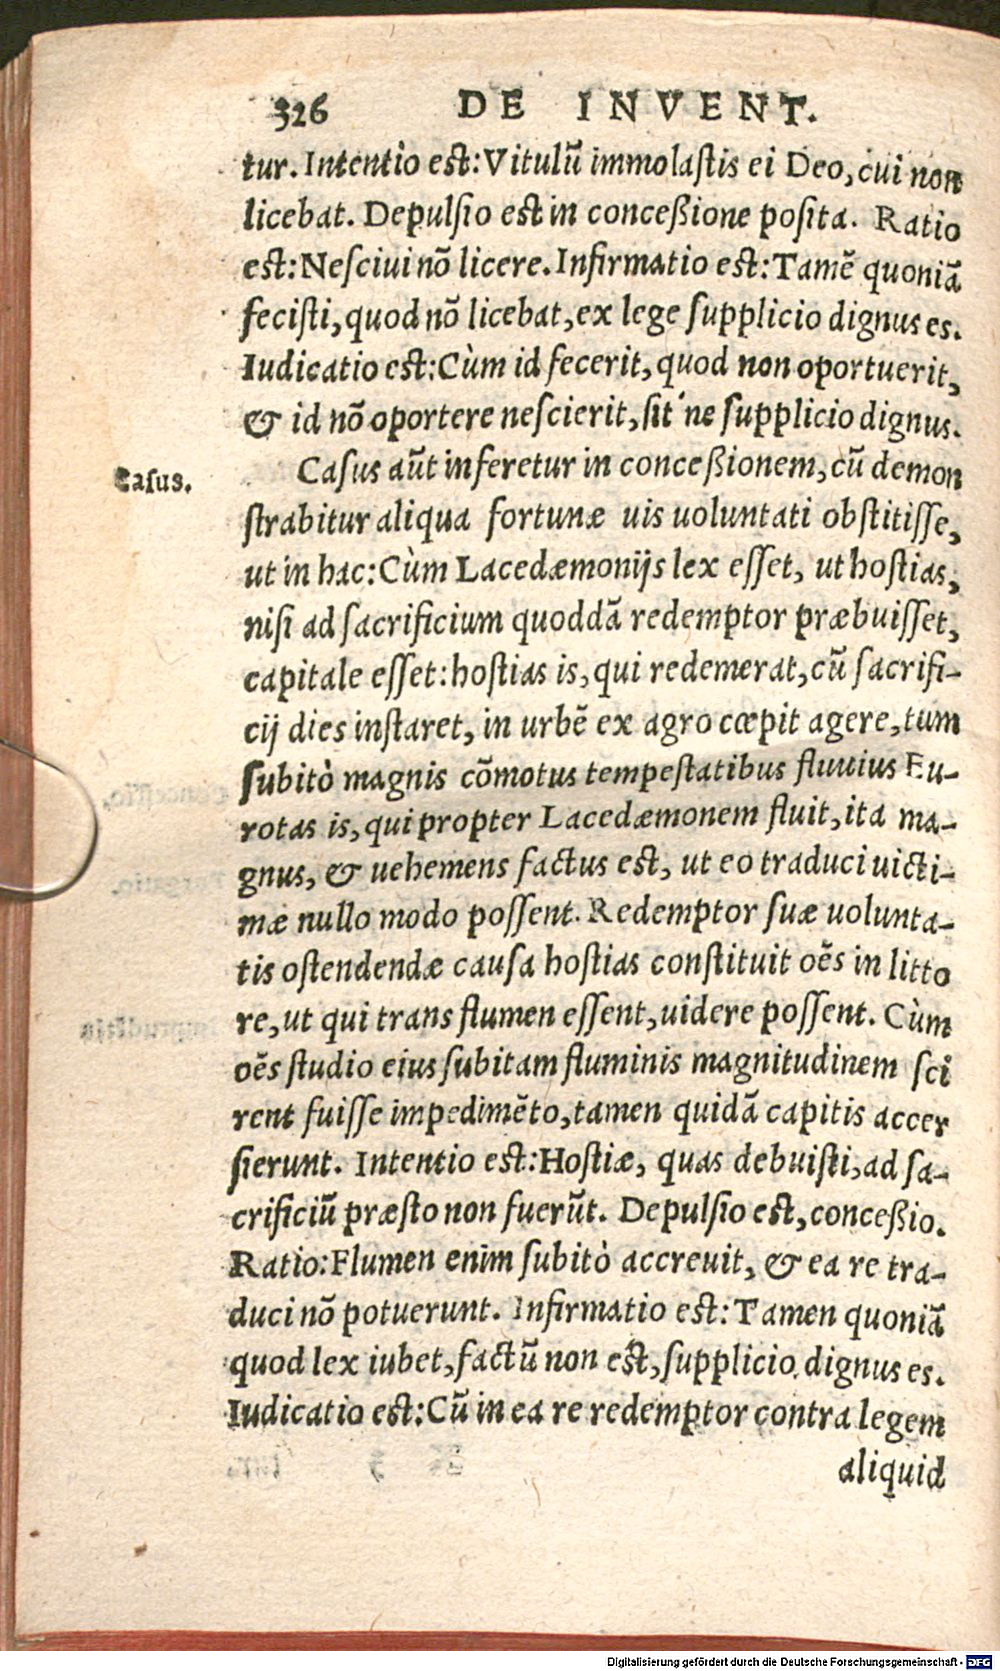 326 DE INVENT.
tur. Intentio est: Vitulū immolastis ei Deo, cui non
licebat. Depulsio est in conceßione posita. Ratio
est: Nesciui nō licere. Infirmatio est: Tamē quoniā
fecisti, quod nō licebat, ex lege supplicio dignus es.
Iudicatio est: Cùm id fecerit, quod non oportuerit,
& id nō oportere nescierit, sit´ne supplicio dignus.
Casus.
Casus aūt inferetur in conceßionem, cū demon
strabitur aliqua fortunæ uis uoluntati obstitisse,
ut in hac: Cùm Lacedæmonijs lex esset, ut hostias,
nisi ad sacrificium quoddā redemptor præbuisset,
capitale esset: hostias is, qui redemerat, cū sacrifi-
cij dies instaret, in urbē ex agro cœpit agere, tum
subitò magnis cōmotus tempestatibus fluuius Eu-
rotas is, qui propter Lacedæmonem fluit, ita ma-
gnus, & uehemens factus est, ut eo traduci uicti-
mæ nullo modo possent. Redemptor suæ uolunta-
tis ostendendæ causa hostias constituit oēs in litto
re, ut qui trans flumen essent, uidere possent. Cùm
oēs studio eius subitam fluminis magnitudinem sci
rent fuisse impedimēto, tamen quidā capitis accer
sierunt. Intentio est: Hostiæ, quas debuisti, ad sa-
crificiū præsto non fuerūt. Depulsio est, conceßio.
Ratio: Flumen enim subitò accreuit, & ea re tra-
duci nō potuerunt. Infirmatio est: Tamen quoniā
quod lex iubet, factū non est, supplicio dignus es.
Iudicatio est: Cū in ea re redemptor contra legem
aliquid
Digitalisierung gefördert durch die Deutsche Forschungsgemeinschaft - DFG